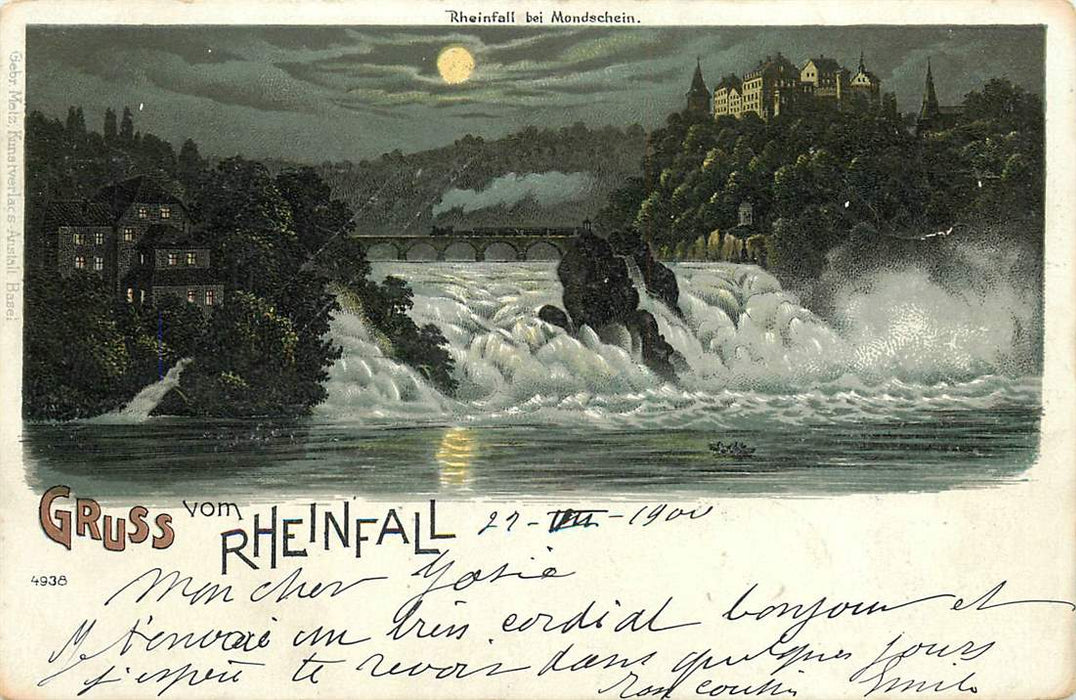 Rheinfall bei Mondschein.
Gebr. Metz, Kunstverlags-Anstalt, Basel
GRUSS vom RHEINFALL 27-VIII-1900
4938
Mon cher
Je t'envoie un très cordial bonjour et
j'espère te revoir dans quelques jours
Ton cousin Emile